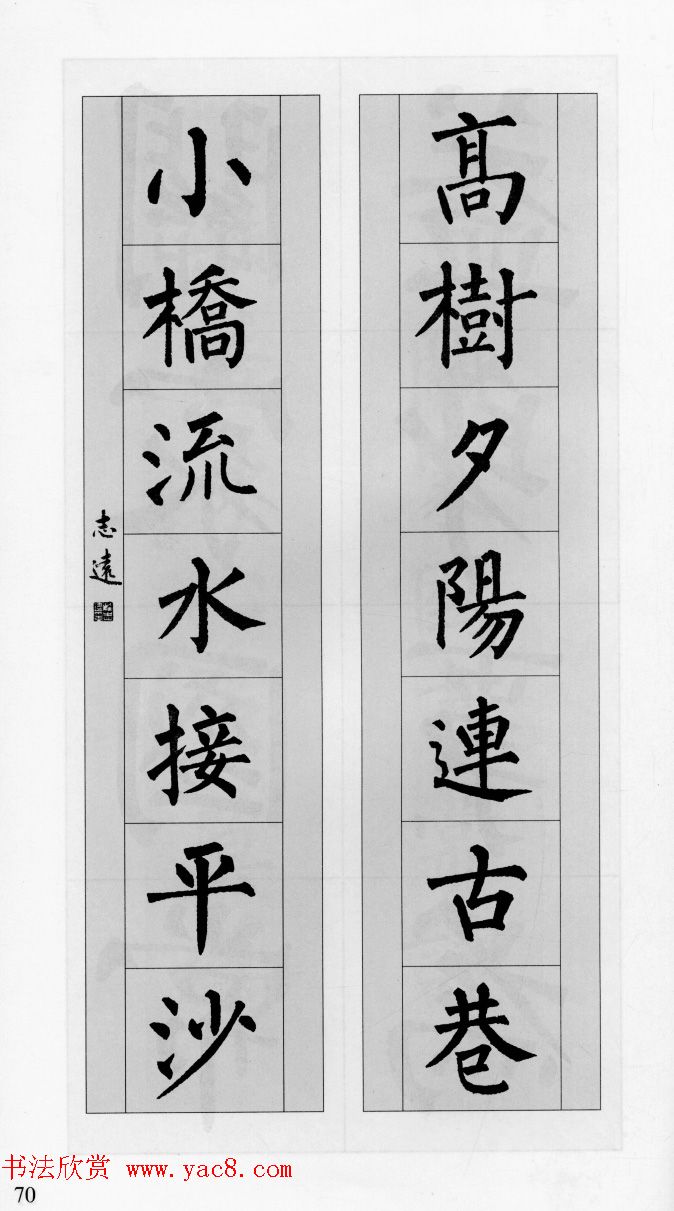 髙樹夕陽連古巷
小橋流水接平沙
志遠
书法欣赏 www.yac8.com
70